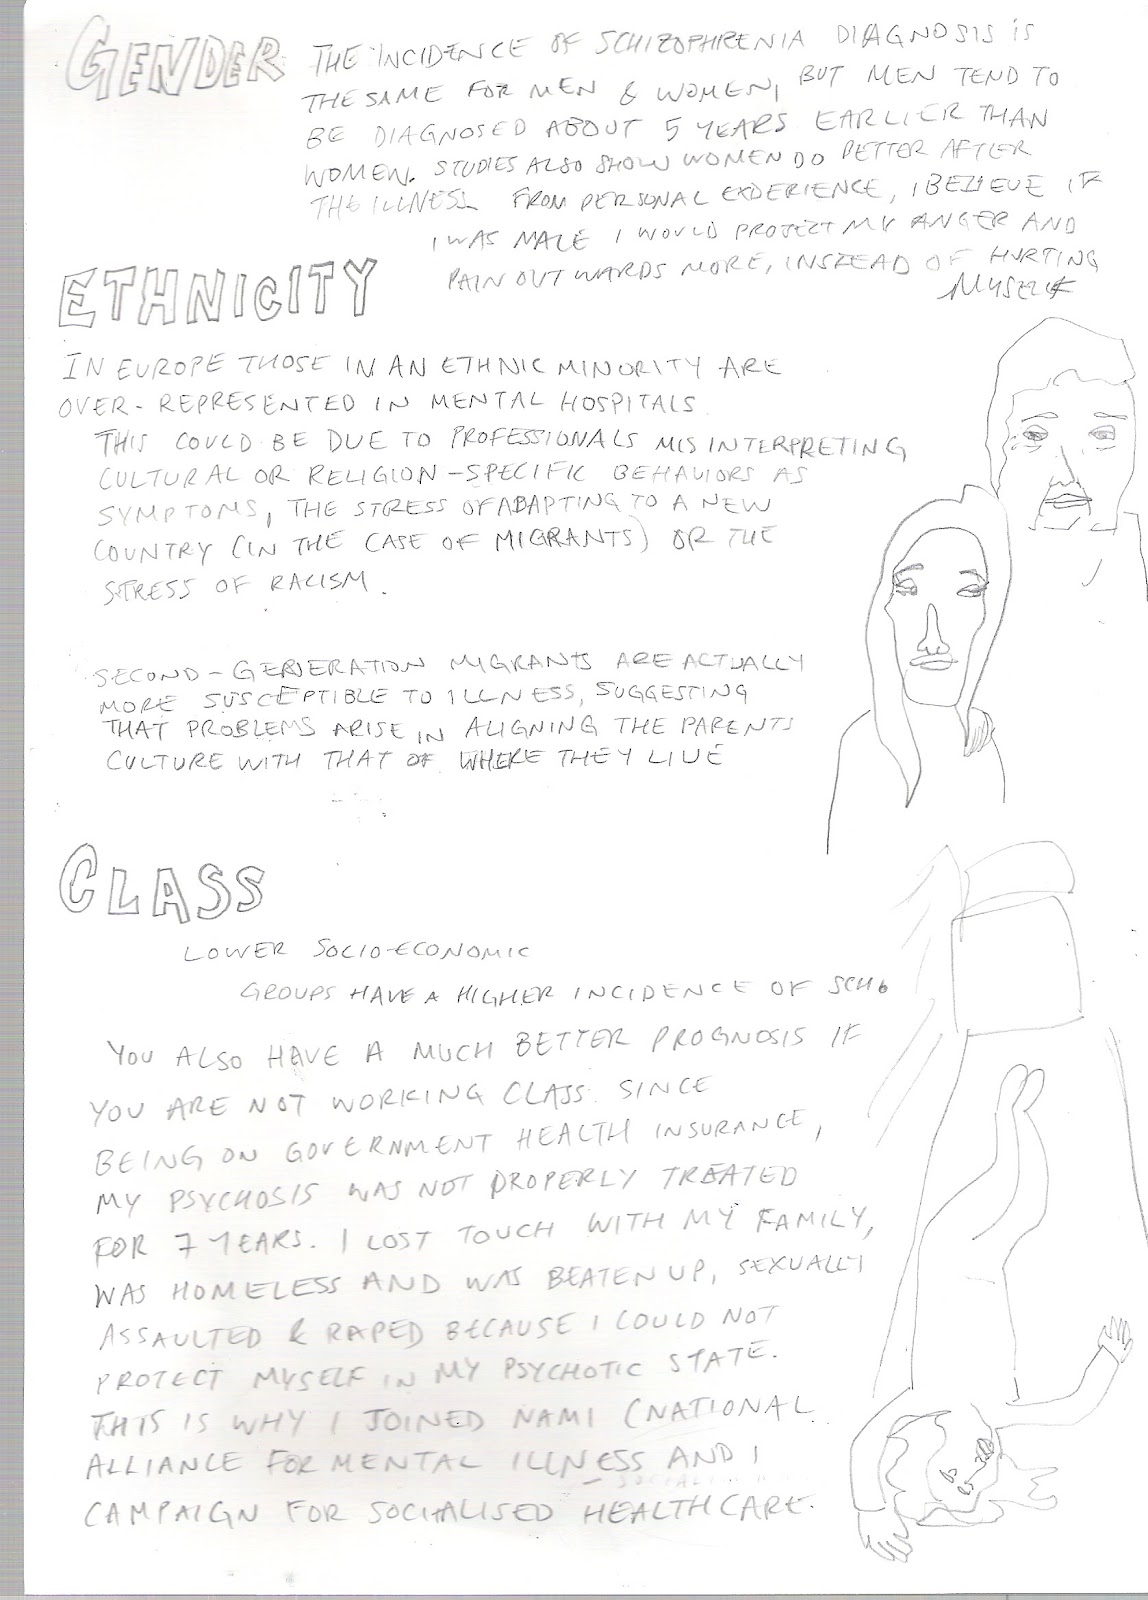 GENDER
THE INCIDENCE OF SCHIZOPHRENIA DIAGNOSIS IS
THE SAME FOR MEN & WOMEN, BUT MEN TEND TO
BE DIAGNOSED ABOUT 5 YEARS EARLIER THAN
WOMEN. STUDIES ALSO SHOW WOMEN DO BETTER AFTER
THE ILLNESS. FROM PERSONAL EXPERIENCE, I BELIEVE IF
I WAS MALE I WOULD PROJECT MY ANGER AND
PAIN OUTWARDS MORE, INSTEAD OF HURTING
MYSELF
ETHNICITY
IN EUROPE THOSE IN AN ETHNIC MINORITY ARE
OVER-REPRESENTED IN MENTAL HOSPITALS.
THIS COULD BE DUE TO PROFESSIONALS MISINTERPRETING
CULTURAL OR RELIGION-SPECIFIC BEHAVIORS AS
SYMPTOMS, THE STRESS OF ADAPTING TO A NEW
COUNTRY (IN THE CASE OF MIGRANTS) OR THE
STRESS OF RACISM.
SECOND-GENERATION MIGRANTS ARE ACTUALLY
MORE SUSCEPTIBLE TO ILLNESS, SUGGESTING
THAT PROBLEMS ARISE IN ALIGNING THE PARENTS
CULTURE WITH THAT OF WHERE THEY LIVE
CLASS
LOWER SOCIO-ECONOMIC
GROUPS HAVE A HIGHER INCIDENCE OF SCH.
YOU ALSO HAVE A MUCH BETTER PROGNOSIS IF
YOU ARE NOT WORKING CLASS. SINCE
BEING ON GOVERNMENT HEALTH INSURANCE,
MY PSYCHOSIS WAS NOT PROPERLY TREATED
FOR 7 YEARS. I LOST TOUCH WITH MY FAMILY,
WAS HOMELESS AND WAS BEATEN UP, SEXUALLY
ASSAULTED & RAPED BECAUSE I COULD NOT
PROTECT MYSELF IN MY PSYCHOTIC STATE.
THIS IS WHY I JOINED NAMI (NATIONAL
ALLIANCE FOR MENTAL ILLNESS AND I
CAMPAIGN FOR SOCIALISED HEALTHCARE.